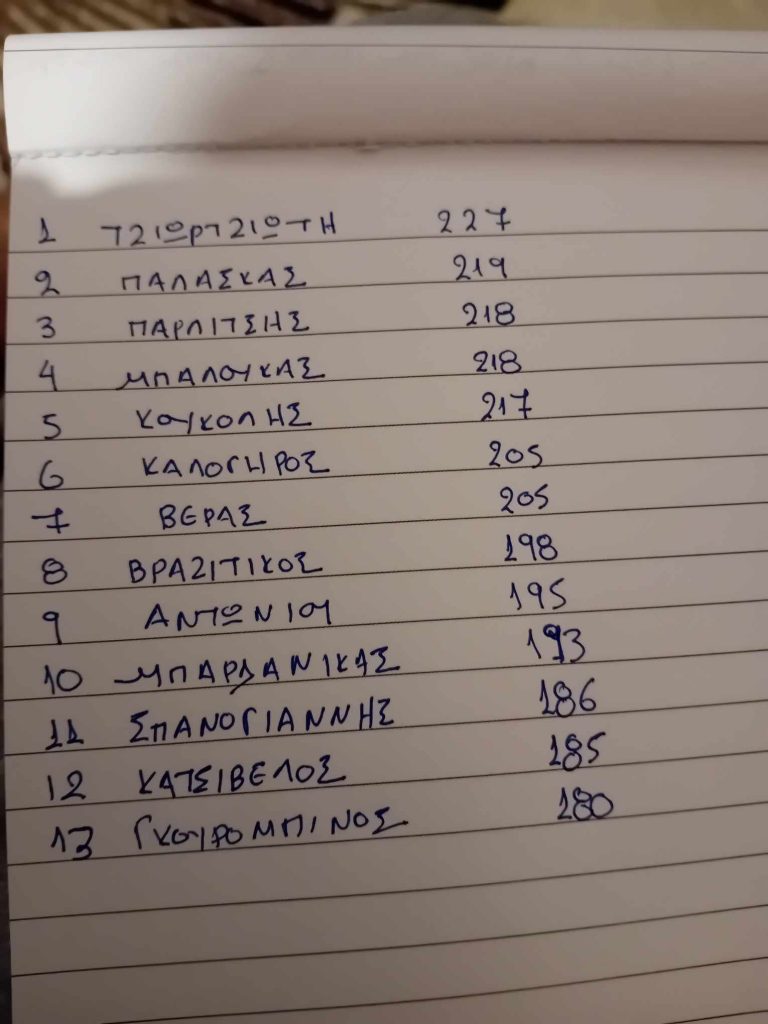 1 ΤΖΙΩΡΤΖΙΩΤΗ 227
2 ΠΑΛΑΣΚΑΣ 219
3 ΠΑΡΛΙΤΣΗΣ 218
4 ΜΠΑΛΟΥΚΑΣ 218
5 ΚΟΥΚΟΛΗΣ 217
6 ΚΑΛΟΓΗΡΟΣ 205
7 ΒΕΡΑΣ 205
8 ΒΡΑΖΙΤΙΚΟΣ 198
9 ΑΝΤΩΝΙΟΥ 195
10 ΜΠΑΡΔΑΝΙΚΑΣ 193
11 ΣΠΑΝΟΓΙΑΝΝΗΣ 186
12 ΚΑΤΣΙΒΕΛΟΣ 185
13 ΓΚΟΥΡΟΜΠΙΝΟΣ 180